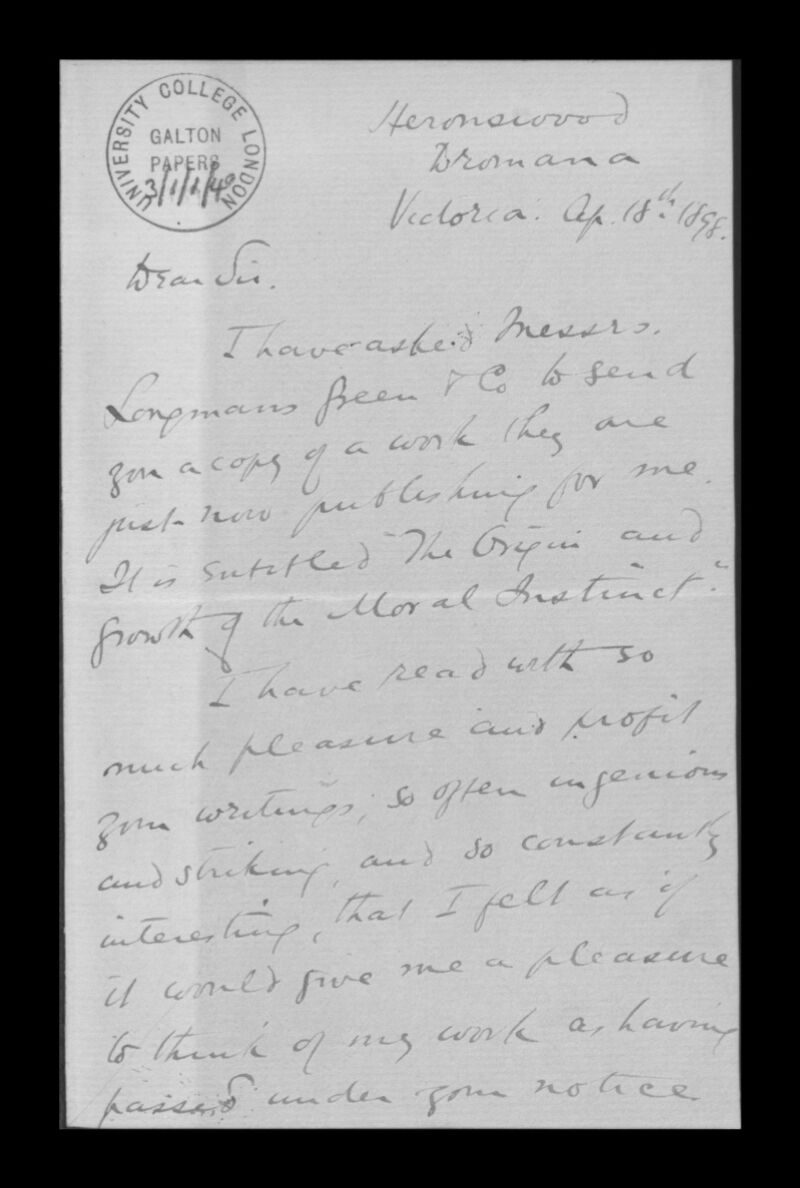 UNIVERSITY COLLEGE LONDON
GALTON
PAPERS
3/1/1/40
Heronswood
Dromana
Victoria. Ap. 18th 1898.
Dear Sir.
I have asked Messrs.
Longmans Green & Co to send
you a copy of a work they are
just now publishing for me.
It is entitled "The Origin and
growth of the Moral Instinct".
I have read with so
much pleasure and profit
your writings, so often ingenious
and striking, and so constantly
interesting, that I felt as if
it would give me a pleasure
to think of my work as having
passed under your notice